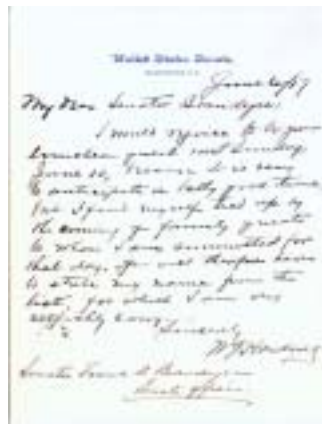 United States Senate
WASHINGTON, D.C.
My Dear Senator Brandegee:
I would rejoice to be your
guest next Sunday
June
to anticipate a jolly good time,
but I find myself tied up by
the coming of family guests
to whom I am committed for
that day. You will therefore have
to strike my name from the
list, for which I am very
sorry.
Sincerely
W G Harding
Senator Frank B. Brandegee
Senate Office